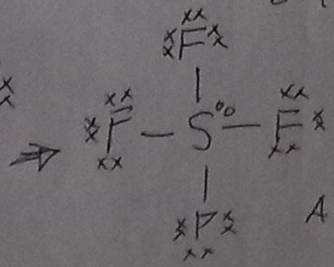 F
F — S — F
P
A